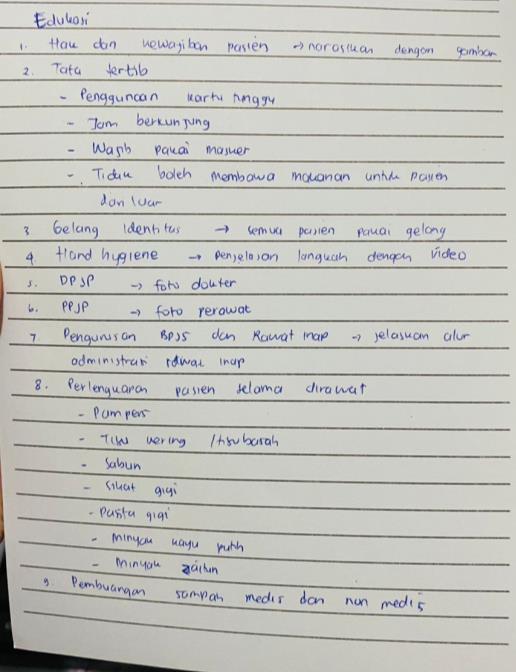 Edukasi
1. Hak dan kewajiban pasien → narasikan dengan gambar
2. Tata tertib
- Penggunaan kartu tunggu
- Jam berkunjung
- Wajib pakai masker
- Tidak boleh membawa makanan untuk pasien
dari luar
3 Gelang Identitas → semua pasien pakai gelang
4 Hand hygiene → penjelasan langkah dengan video
5. DPJP → foto dokter
6. PPJP → foto perawat
7 Pengurusan BPJS dan Rawat inap → jelaskan alur
administrasi rawat inap
8. Perlengkapan pasien selama dirawat
- Pampers
- Tisu kering / tisu basah
- Sabun
- Sikat gigi
- Pasta gigi
- Minyak kayu putih
- Minyak zaitun
9. Pembuangan sampah medis dan non medis